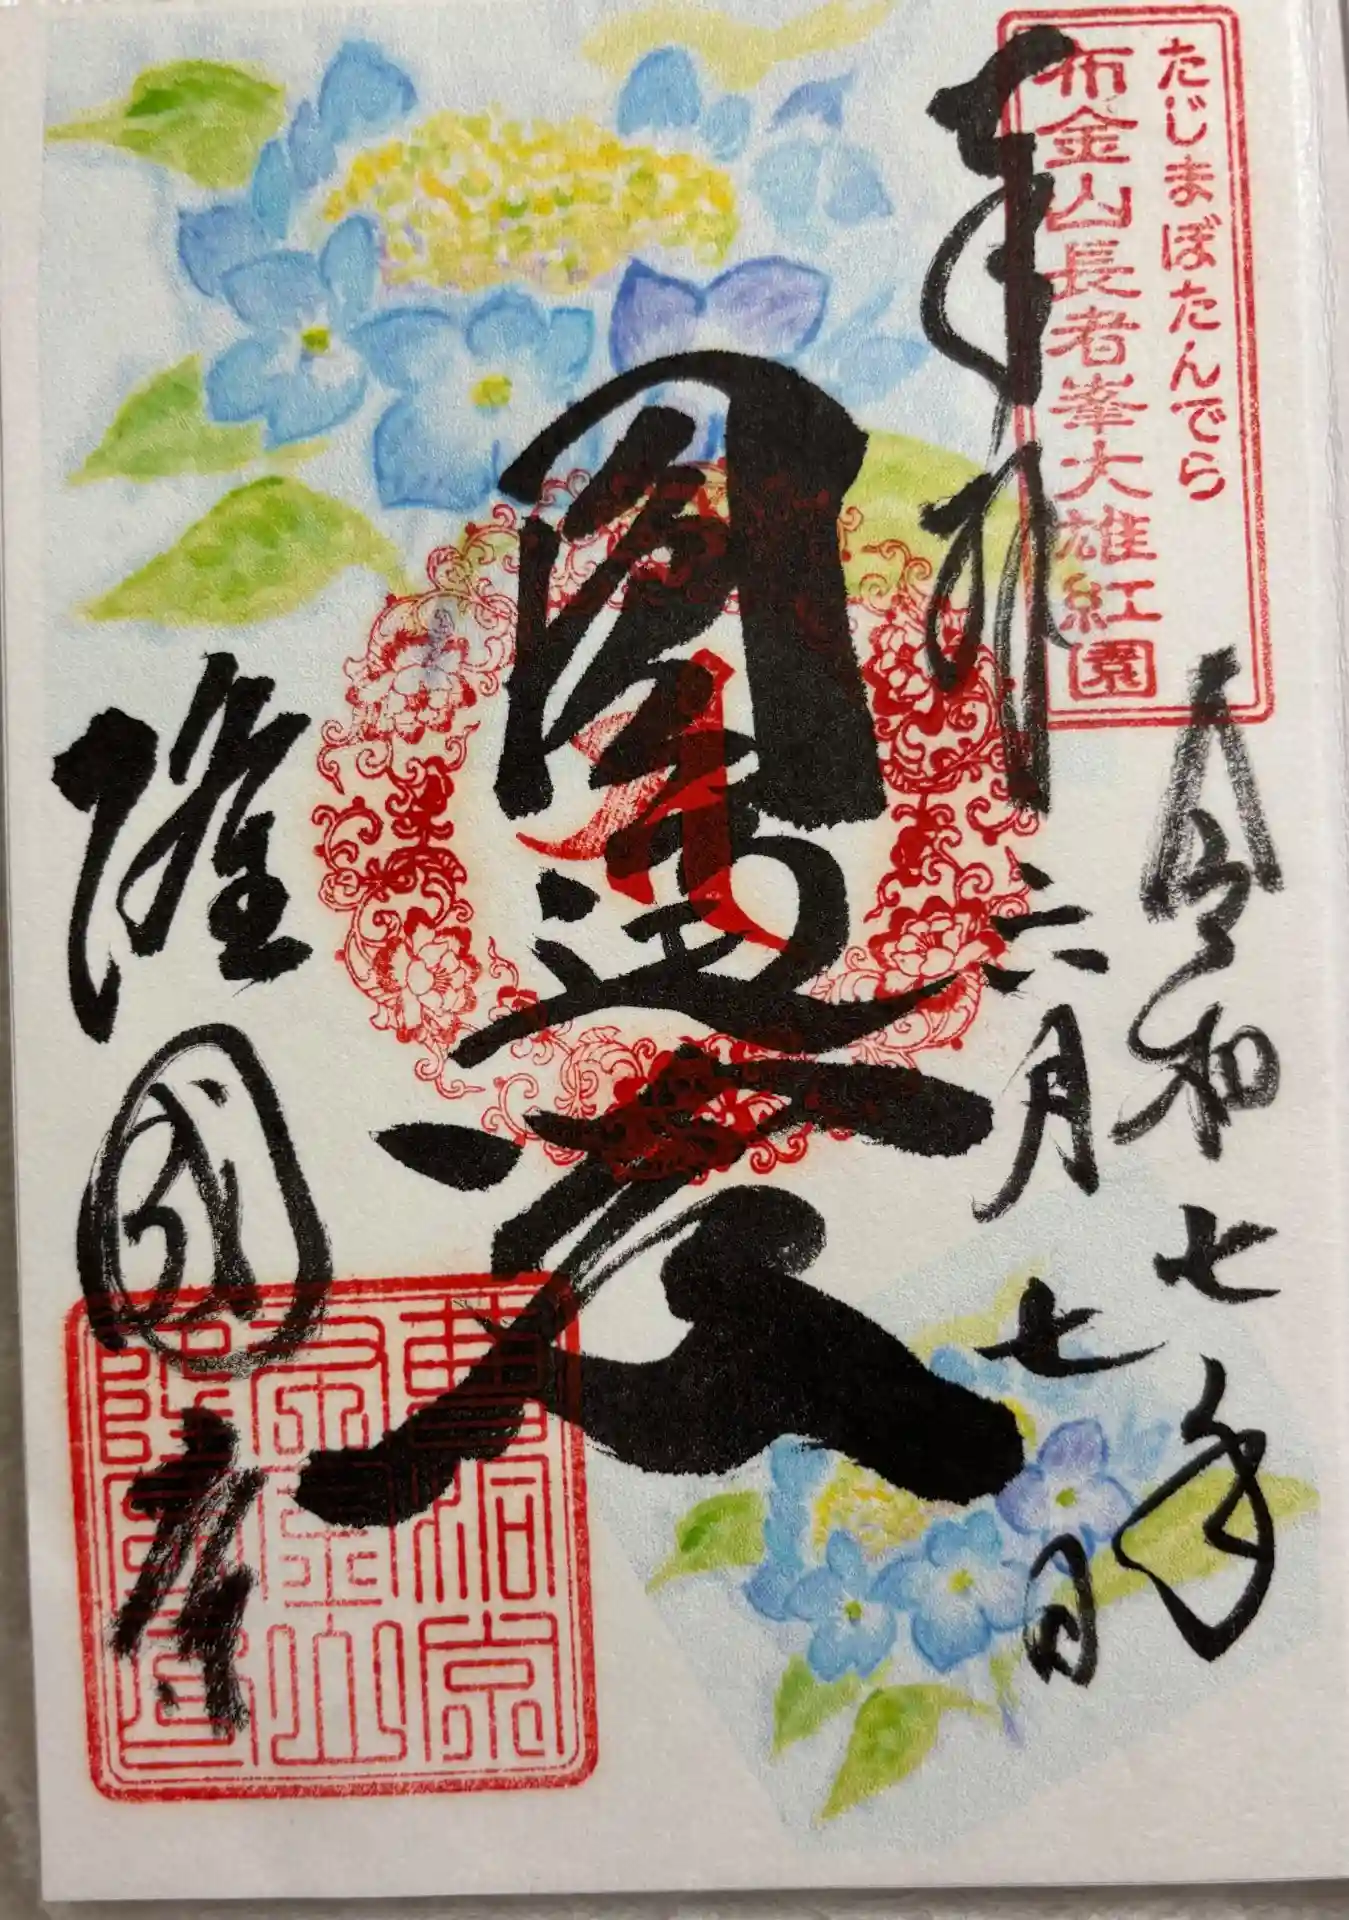 たじまぼたんでら
布金山長者峯大雄紅園
奉拝
令和七年
六月七日
圓通殿
隆國寺
曹洞宗
布金山
隆國寺